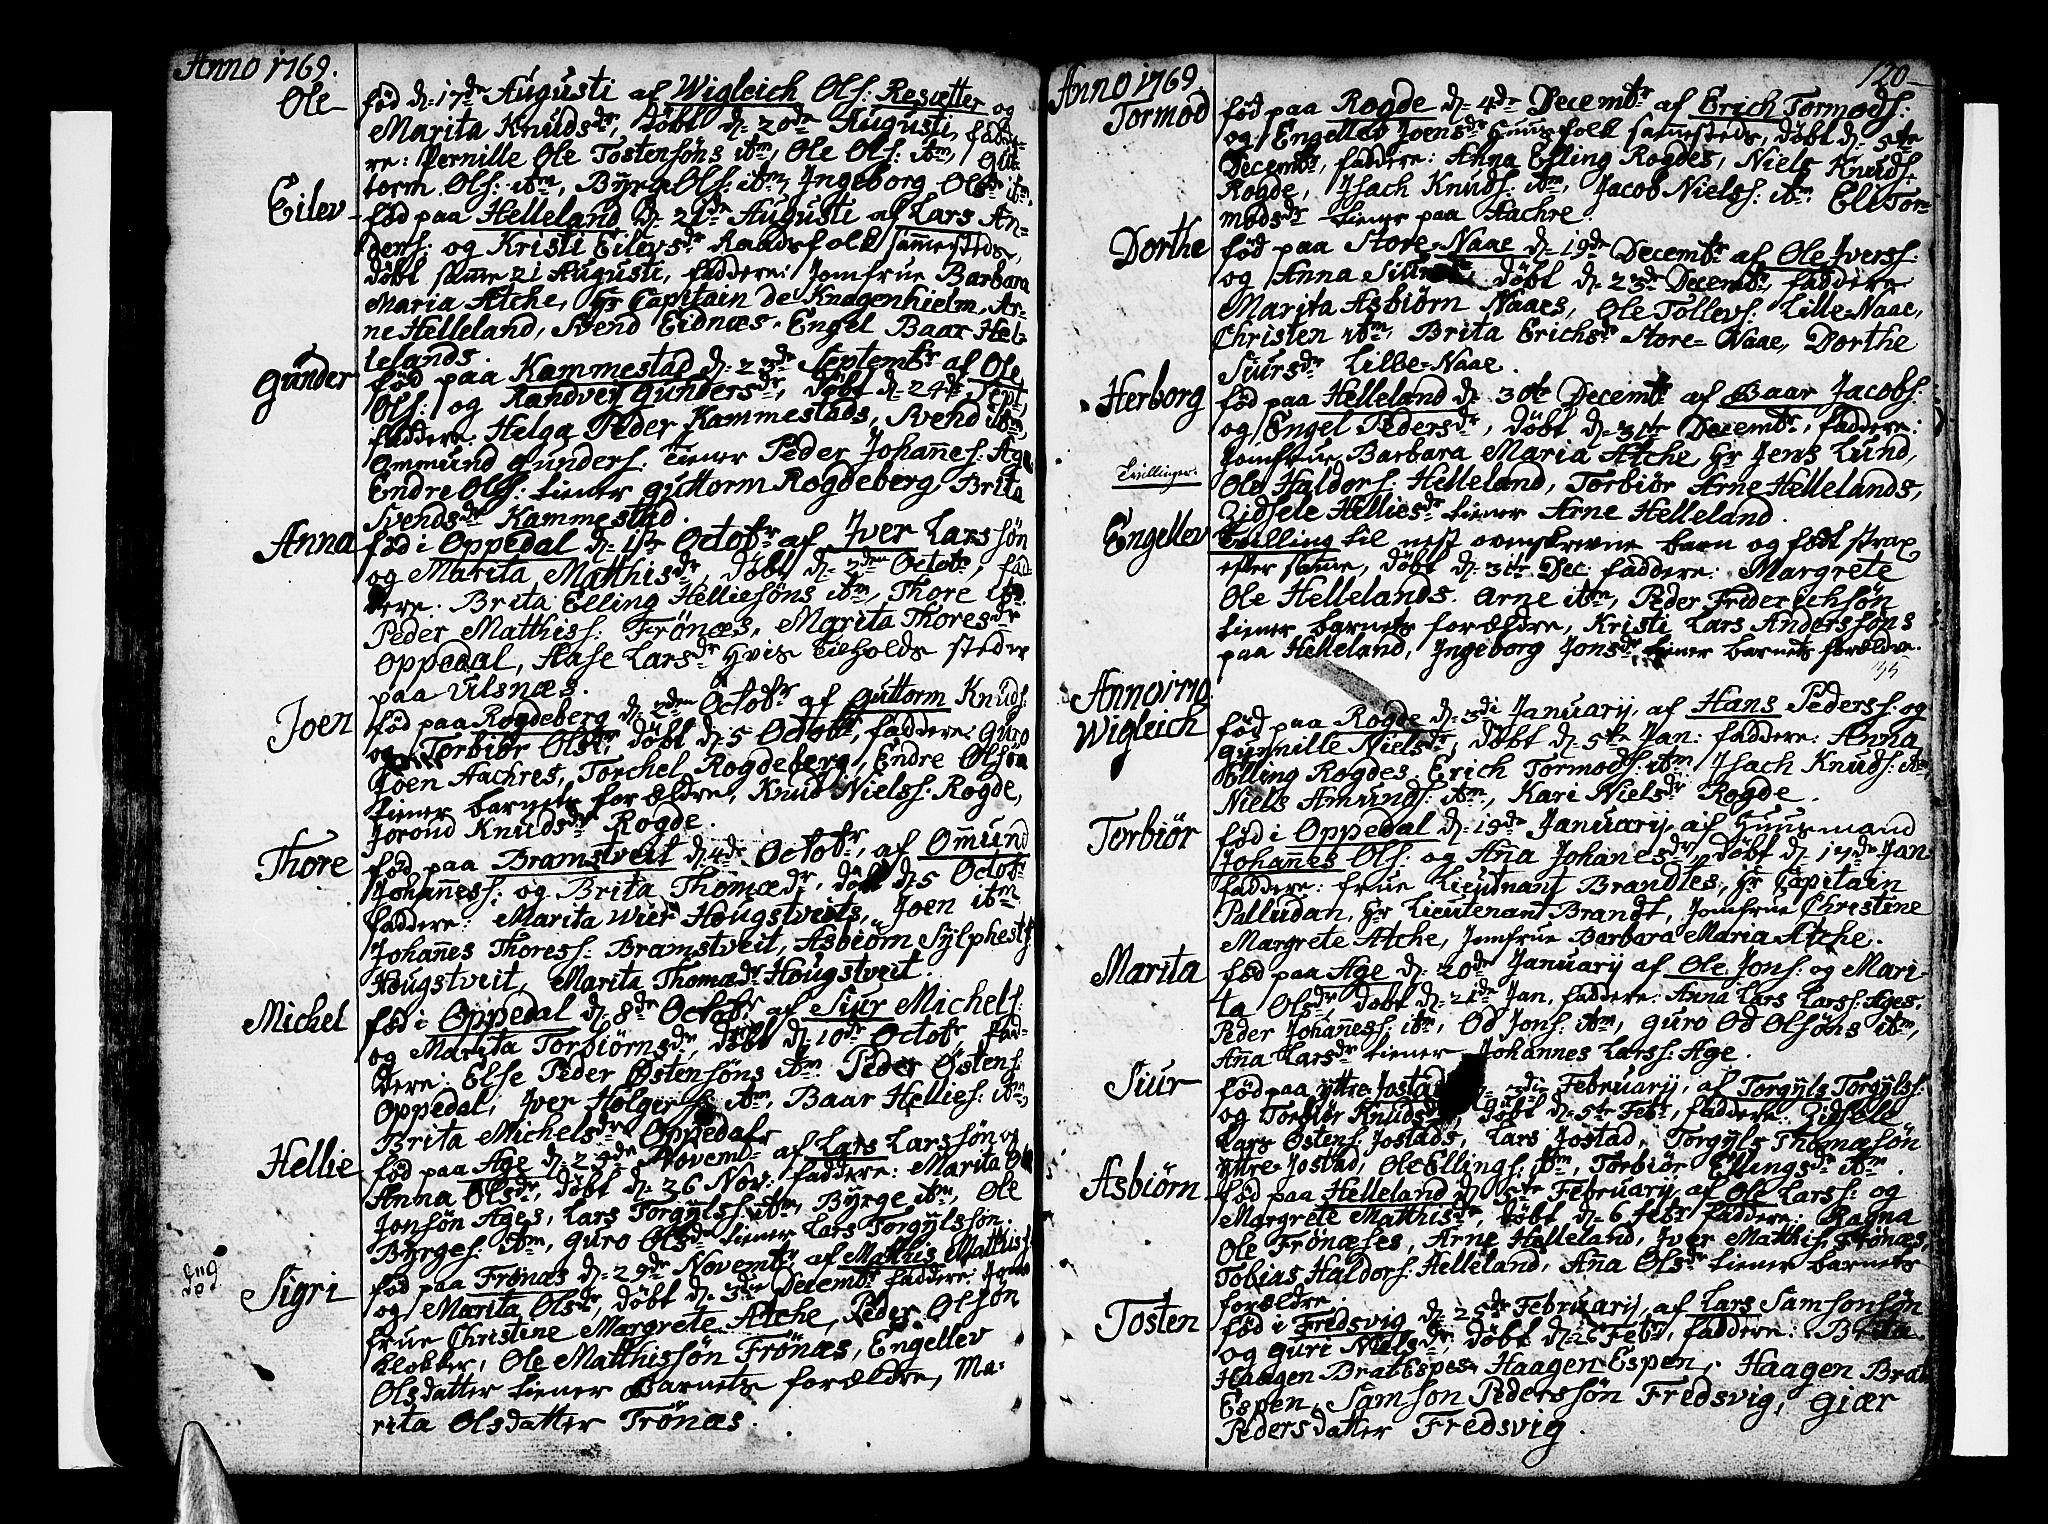 Anno 1769.
Ole
fød d: 17de Augusti af Wigleich Ols: Resætter og
Marita Knudsdr, døbt d: 20de Augusti, fadde-
re: Pernille Ole Tostensøns ibm, Ole Ols: ibm, Gut-
torm Ols: ibm, Byrge Ols: ibm, Ingeborg Olsdr ibm.
Eilev
fød paa Helleland d: 21de Augusti af Lars An-
ders: og Kristi Eilevsdr Raadsfolk sammesteds,
døbt samme 21 Augusti, faddere: Jomfrue Barbara
Maria Atche, Hr Capitain de Knagenhielm, Ar-
ne Helleland, Svend Eidnæs. Engel Baar Hel-
lelands.
Gunder
fød paa Kammestad d: 23de Septembr af Ole
Ols: og Randvey Gundersdr, døbt d: 24de Sept,
faddere: Helga Peder Kammestads, Svend ibm,
Ommund Gunders: tiener Peder Johannes: Age,
Endre Ols: tiener Guttorm Rogdeberg, Brita
Svendsdr Kammestad.
Anna
fød i Oppedal d: 1ste Octobr af Iver Larssøn
og Marita Matthisdr, døbt d: 2den Octobr, fad-
dere: Brita Elling Helliesøns ibm, Thore ibm
Peder Matthiss: Frønæs, Marita Thoresdr
Oppedal, Aase Larsdr Hvis tilholds steder
paa Ulsnæs.
Joen
fød paa Rogdeberg d: 2den Octobr af Guttorm Knuds:
og Torbiør Olsdr, døbt d: 5 Octobr, faddere: Guro
Joen Aachres, Torchel Rogdeberg, Endre Olsøn
tiener barnets forældre, Knud Niels: Rogde,
Jorond Knudsdr Rogde.
Thore
fød paa Bramstveit d: 4de Octobr, af Omund
Johanness: og Brita Thomædr, døbt d: 5 Octobr
faddere: Marita Wier Hougstveits, Joen ibm
Johannes Thoress: Bramstveit, Asbiørn Sylphests:
Hougstveit, Marita Thomædr Hougstveit.
Michel
fød i Oppedal d: 8de Octobr af Siur Michels:
og Marita Torbiørnsdr, døbt d: 10de Octobr, fad-
dere: Else Peder Østensøns ibm Peder Østens:
Oppedal, Iver Holgers: ibm, Baar Hellies: ibm,
Brita Michelsdr Oppedal.
Hellie
fød paa Age d: 24de Novembr af Lars Larssøn og
Anna Olsdr, døbt d: 26 Nov: faddere: Marita Ole
Jonsøn Ages, Lars Torgylss: ibm, Byrge ibm, Ole
Byrges: ibm, Guro Olsdr tiener Lars Torgylssøn.
Sigri
fød paa Frønæs d: 29de Novembr, af Mathis Matthis:
og Marita Olsdr, døbt d: 3die Decembr faddere: Jom-
frue Christine Margrete Atche, Peder Olsøn
Klokker, Ole Matthissøn Frønæs, Engellev
Olsdatter tiener Barnets forældre, Ma-
rita Olsdatter Frønæs.
Anno 1769
120
Tormod
fød paa Rogde d: 4de Decembr af Erich Tormods:
og Engellev Joensdr Huusfolk samesteds, døbt d: 5te
Decembr, faddere: Anna Elling Rogdes, Niels Knuds:
Rogde, Isach Knuds: ibm, Jacob Nielss: ibm Eli Tor-
modsdr tiener paa Aachre.
Dorthe
fød paa Store-Naae d: 19de Decembr af Ole Ivers:
og Anna Siursdr, døbt d: 23de Decembr, faddere
Marita Asbiørn Naaes, Ole Tollevs: Lille-Naae,
Christen ibm, Brita Erichsdr Store-Naae, Dorthe
Siursdr Lille-Naae.
Herborg
fød paa Helleland d: 30te Decembr af Baar Jacobs:
og Engel Pedersdr, døbt d: 31te Decembr, faddere:
Jomfrue Barbara Maria Atche, Hr Jens Lund,
Tvillinger.
Ole Haldors: Helleland, Torbiør Arne Hellelands,
Zidsele Helliesdr tiener Arne Helleland.
Engellev
Tvilling til nest ovenskrevne barn og født strax
efter samme, døbt d: 31te Dec: faddere: Margrete
Ole Hellelands. Arne ibm, Peder Frederichsøn
tiener barnets forældre, Kristi Lars Anderssøns
paa Helleland, Ingeborg Jonsdr tiener barnets forældre.
35
Anno 1770.
Wigleich
fød paa Rogde d: 3di Januarij, af Hans Peders: og
Gunnille Nielsdr, døbt d: 5te Jan: faddere: Anna
Elling Rogdes. Erich Tormods: ibm Isach Knuds: ibm
Niels Amunds: ibm, Kari Nielsdr Rogde.
Torbiør
fød i Oppedal d: 15de Januarij af Huusmand
Johannes Ols: og Ana Johanesdr, døbt d: 17de Jan:
faddere: frue Lieutnant Brandtes, Hr Capitain
Palludan, Hr Lieutenant Brandt, Jomfrue Christine
Margrete Atche, Jomfrue Barbara Maria Atche.
Marita
fød paa Age d: 20de Januarij af Ole Jons: og Mari-
ta Olsdr, døbt d: 21de Jan, faddere: Anna Lars Larss: Ages.
Peder Johanness: ibm, Od Jons: ibm, Guro Od Olsøns ibm,
Ana Larsdr tiener Johannes Larss: Age.
Siur
fød paa Yttre Jostad d: 3die Februarij, af Torgyls Torgylss:
og Torbiør Knudsdr, døbt d: 5te Febr, faddere: Zidsele
Lars Østens: Jostads, Lars Jostad, Torgyls Thomæsøn
Yttre Jostad, Ole Ellings: ibm, Torbiør Ellingsdr ibm.
Asbiørn
fød paa Helleland d: 5te Februarij af Ole Larss: og
Margrete Matthisdr, døbt d: 6 febr faddere: Ragna
Ole Frønæses, Arne Helleland, Iver Matthis: Frønæs,
Tobias Haldors: Helleland, Ana Olsdr tiener barnets
forældre.
Tosten
fød i Fredsvig d: 25de Februarij, af Lars Samsonsøn
og Guri Nielsdr, døbt d: 26 Febr, faddere: Brita
Haagen BratEspes. Haagen Espen, Haagen Brat-
Espen, Samson Pederssøn Fredsvig, Giær
Pedersdatter Fredsvig.